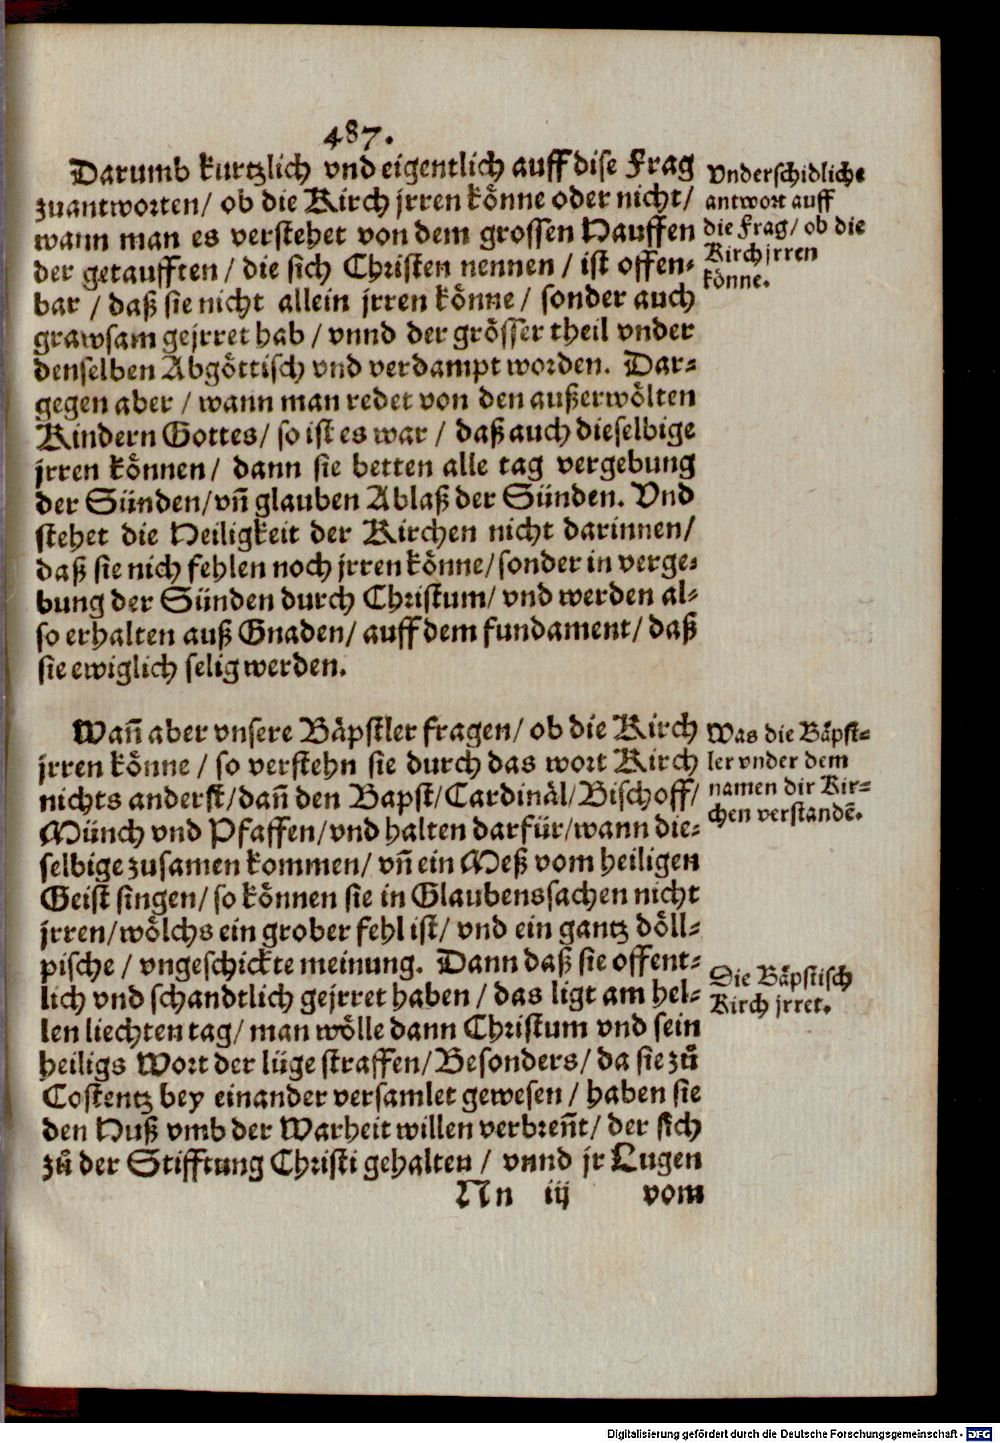 487.
Darumb kurtzlich vnd eigentlich auff dise Frag
zuantworten/ ob die Kirch jrren könne oder nicht/
wann man es verstehet von dem grossen Hauffen
der getaufften / die sich Christen nennen / ist offen-
bar / daß sie nicht allein jrren könne / sonder auch
grawsam gejrret hab / vnnd der grösser theil vnder
denselben Abgöttisch vnd verdampt worden. Dar-
gegen aber / wann man redet von den außerwölten
Kindern Gottes/ so ist es war / daß auch dieselbige
jrren können/ dann sie betten alle tag vergebung
der Sünden/vñ glauben Ablaß der Sünden. Vnd
stehet die Heiligkeit der Kirchen nicht darinnen/
daß sie nich fehlen noch jrren könne/sonder in verge-
bung der Sünden durch Christum/ vnd werden al-
so erhalten auß Gnaden/ auff dem fundament/ daß
sie ewiglich selig werden.
Vnderschidliche
antwort auff
die Frag/ ob die
Kirch jrren
könne.
Wañ aber vnsere Bäpstler fragen/ ob die Kirch
jrren könne / so verstehn sie durch das wort Kirch
nichts anderst/dañ den Bapst/Cardinäl/Bischoff/
Münch vnd Pfaffen/vnd halten darfür/wann die-
selbige zusamen kommen/ vñ ein Meß vom heiligen
Geist singen/ so können sie in Glaubenssachen nicht
jrren/wölchs ein grober fehl ist/ vnd ein gantz döll-
pische / vngeschickte meinung. Dann daß sie offent-
lich vnd schandtlich gejrret haben / das ligt am hel-
len liechten tag/ man wölle dann Christum vnd sein
heiligs Wort der lüge straffen/Besonders/ da sie zů
Costentz bey einander versamlet gewesen / haben sie
den Huß vmb der Warheit willen verbreñt/ der sich
zů der Stifftung Christi gehalten / vnnd jr Lugen
Was die Bäpst-
ler vnder dem
namen dir Kir-
chen verstandẽ.
Die Bäpstisch
Kirch jrret.
Nn iij vom
Digitalisierung gefördert durch die Deutsche Forschungsgemeinschaft - DFG